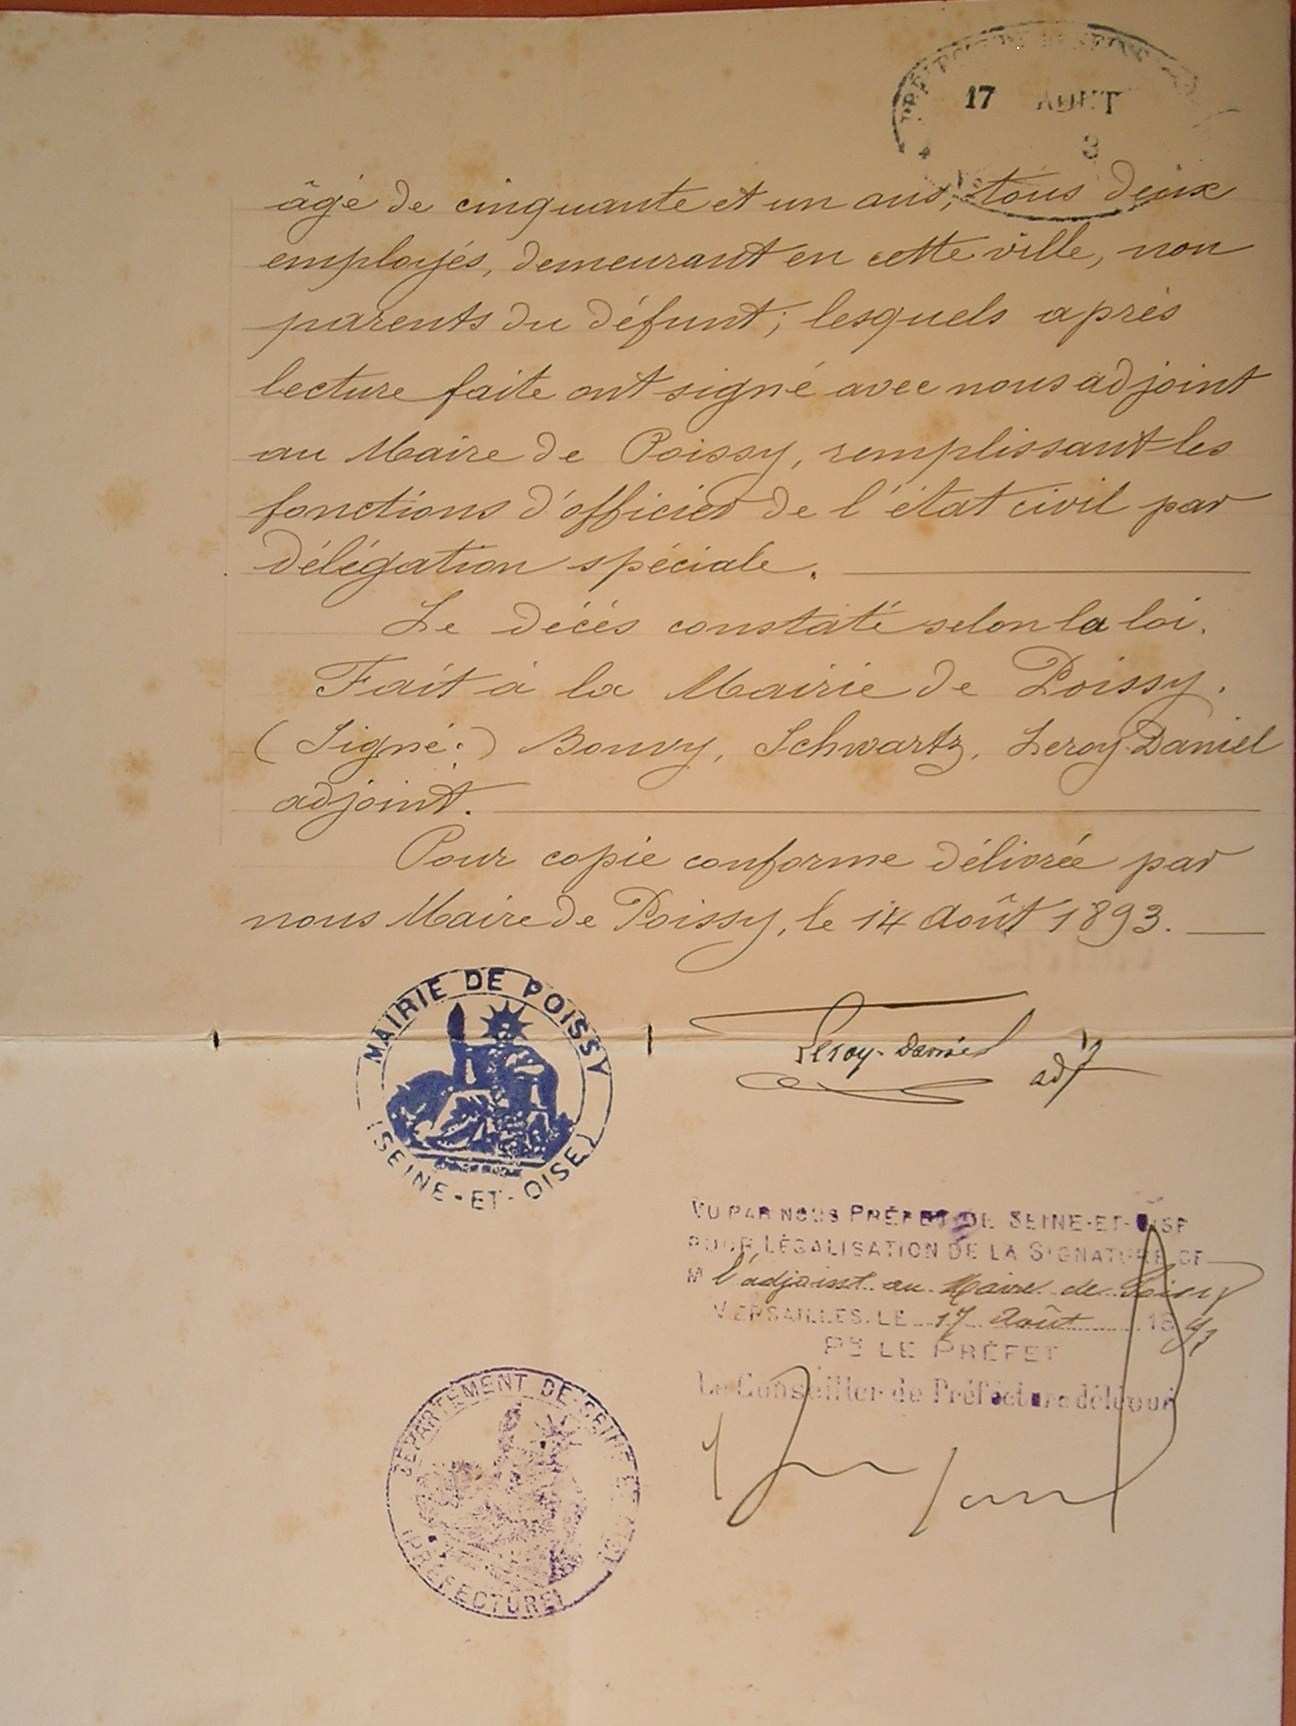 17 AOUT
3
âgé de cinquante et un ans, tous deux
employés, demeurant en cette ville, non
parents du défunt; lesquels après
lecture faite ont signé avec nous adjoint
au Maire de Poissy, remplissant les
fonctions d'officier de l'état civil par
délégation spéciale.
Le décès constaté selon la loi.
Fait à la Mairie de Poissy.
(Signé:) Bouvy, Schwartz, Leroy-Daniel
adjoint.
Pour copie conforme délivrée par
nous Maire de Poissy, le 14 Août 1893.
MAIRIE DE POISSY
(SEINE-ET-OISE)
Leroy-Daniel adjt
VU PAR NOUS PRÉFET DE SEINE-ET-OISE
POUR LÉGALISATION DE LA SIGNATURE DE
M l'adjoint au Maire de Poissy
VERSAILLES, LE 17 Août 1893
PR LE PRÉFET
Le Conseiller de Préfecture délégué
DÉPARTEMENT DE SEINE ET OISE
(PRÉFECTURE)